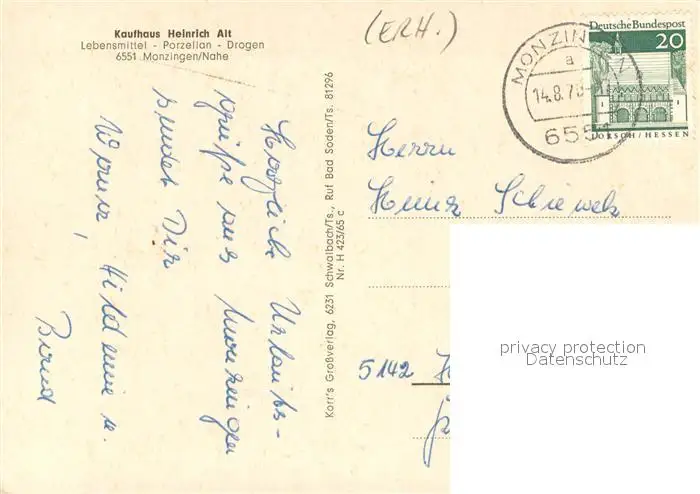 Kaufhaus Heinrich Alt
Lebensmittel - Porzellan - Drogen
6551 Monzingen/Nahe
Herzliche Urlaubs-
grüße aus Monzingen
sendet Dir
Werner, Hildemie u.
Bernd
Korr's Großverlag, 6231 Schwalbach/Ts., Ruf Bad Soden/Ts. 81296
Nr. H 423/65 c
(ERH.)
MONZINGEN
a
14.8.70
6551
Deutsche Bundespost
20
LORSCH/HESSEN
Herrn
Heinz
5142
privacy protection
Datenschutz